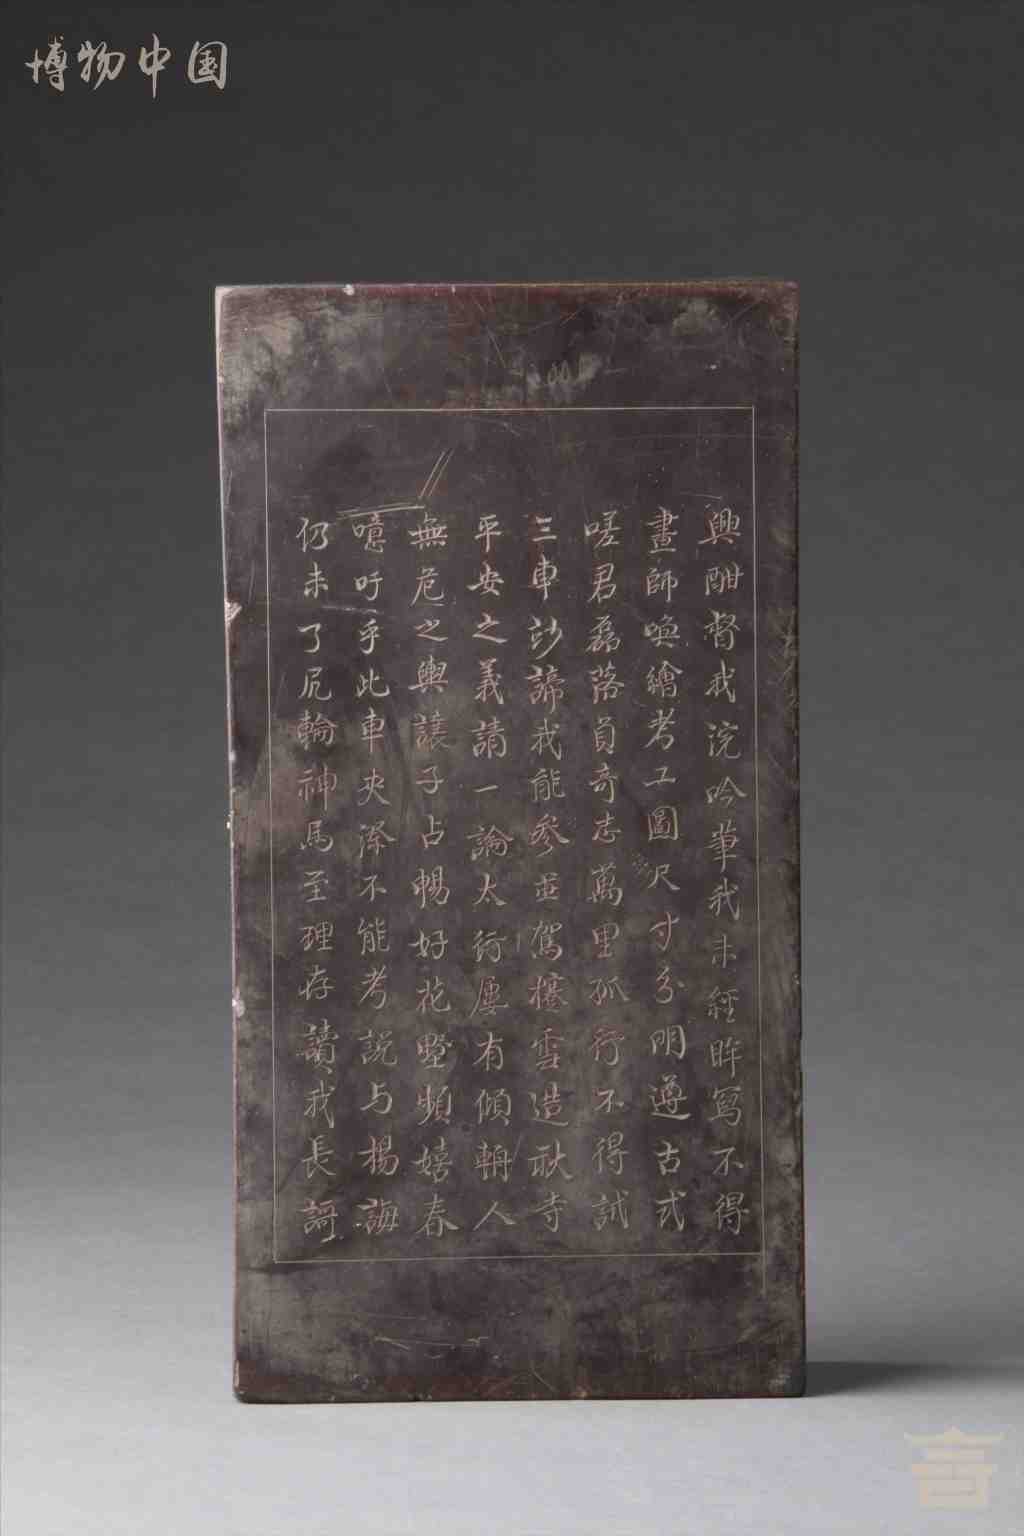 博物中国
興酣督我浣吟筆我未經眸寫不得
畫師喚繪考工圖尺寸分明遵古式
嗟君磊落負奇志萬里孤行不得試
三車妙諦我能參並駕樓雲造耿寺
平安之義請一論太行屢有傾輈人
無危之輿讓子占暢好花墅頻嬉春
噫吁乎此車夾漈不能考説与楊誨
仍未了尻輪神馬至理存讀我長謌